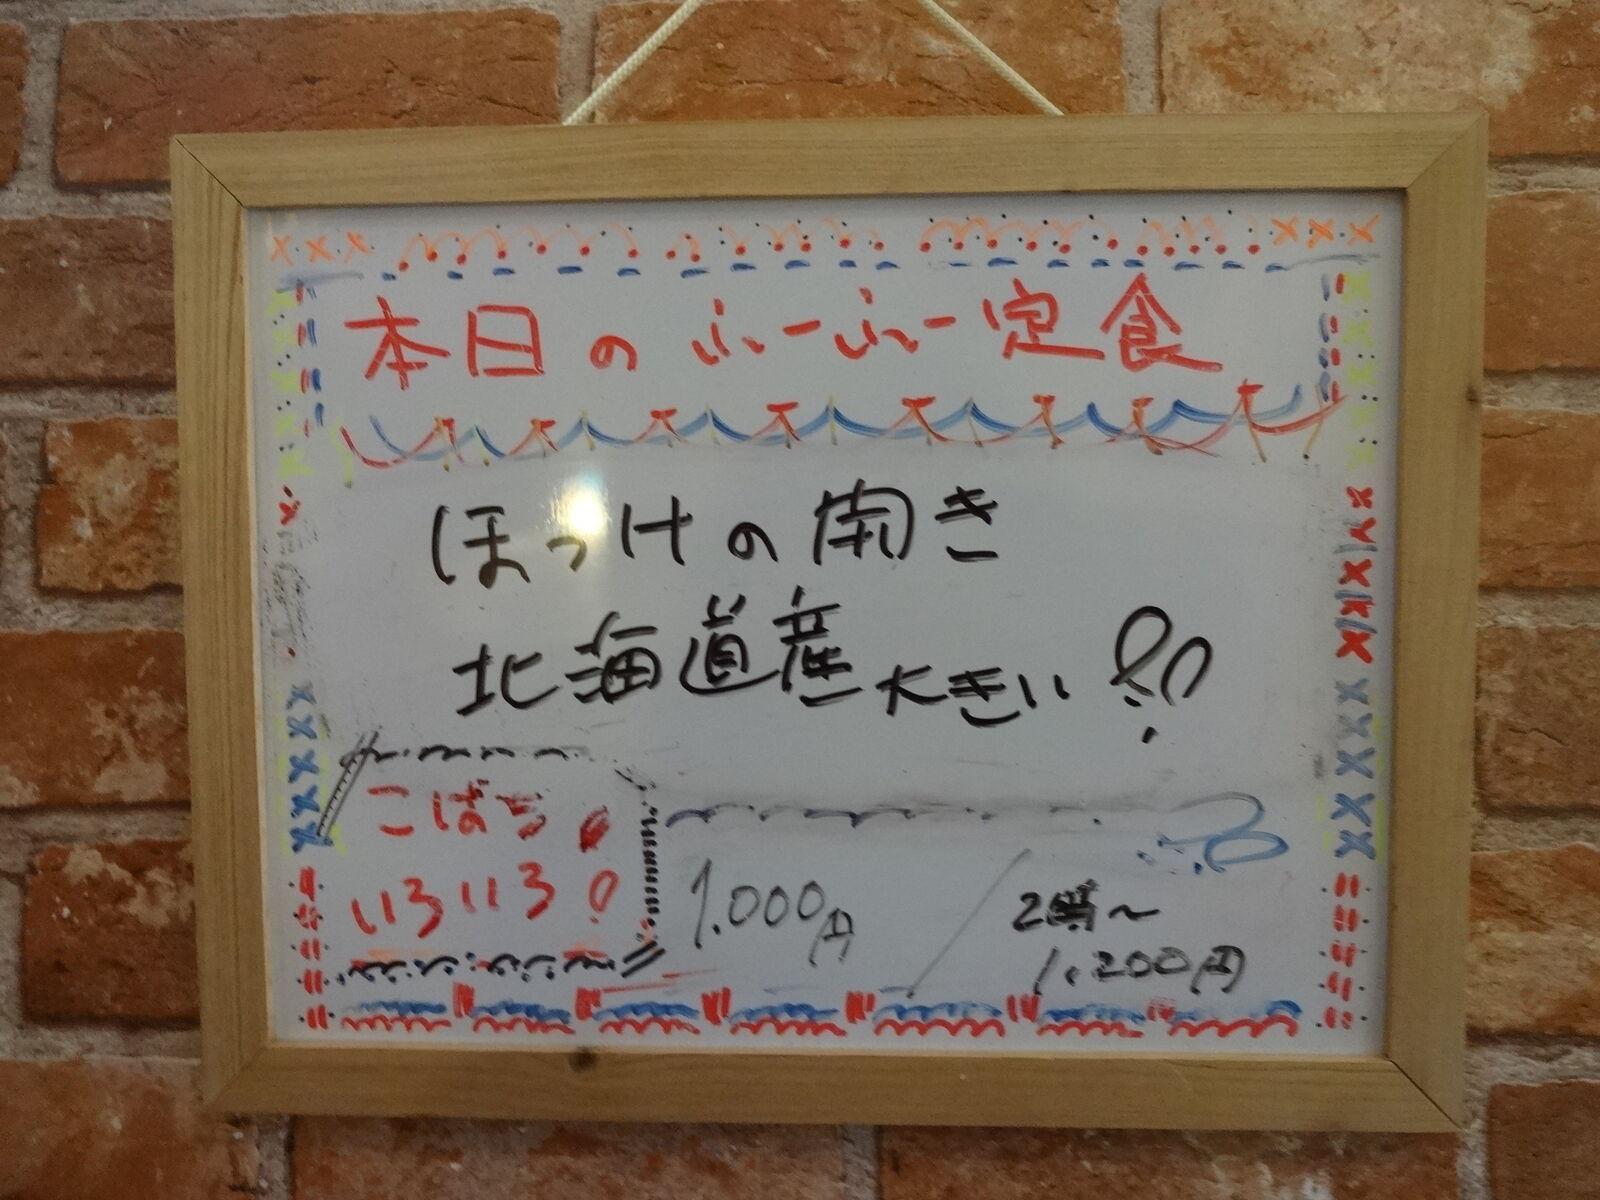 本日のふーふー定食
ほっけの開き
北海道産大きい!!
こばち!
いろいろ!
1.000円
2時〜
1.200円